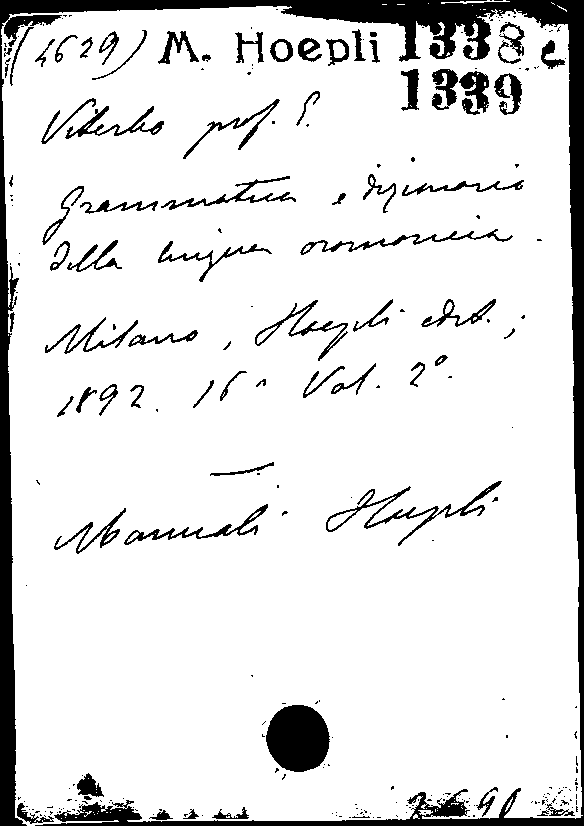 (4629) M. Hoepli 1338 c
1339
Viterbo prof. E.
Grammatica e dizionario
della lingua oromonica.
Milano, Hoepli edit.;
1892. 16° Vol. 2°.
Manuali Hoepli